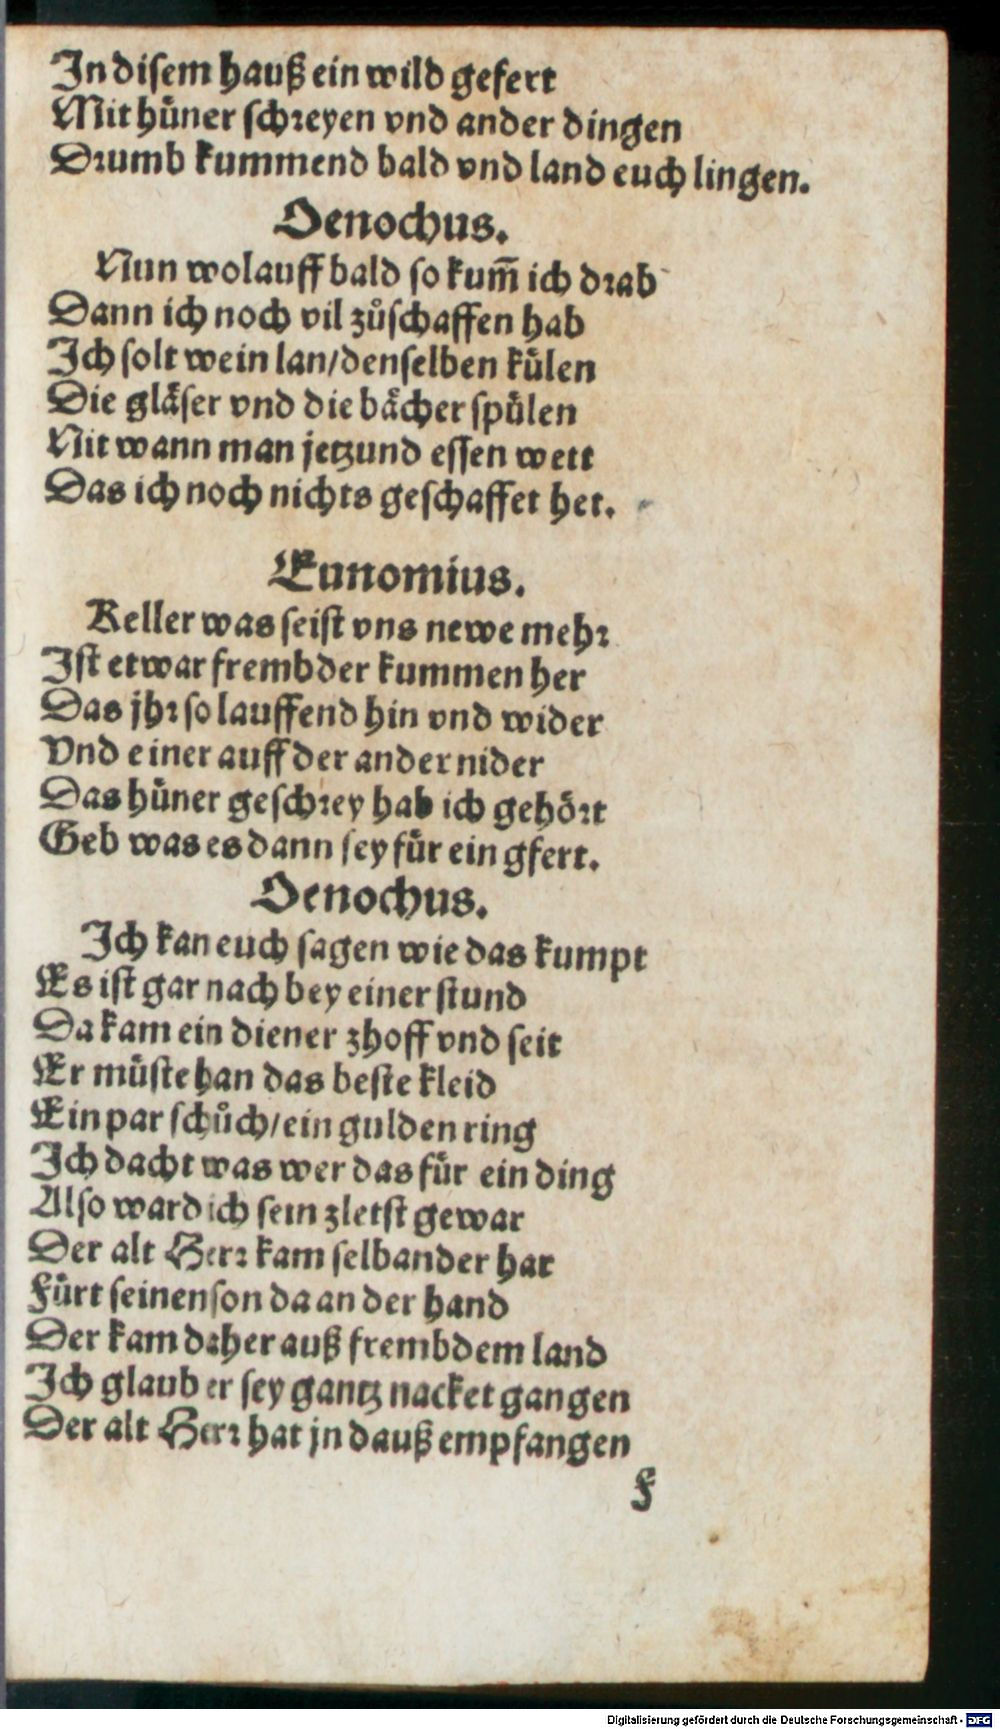 In disem hauß ein wild gefert
Mit huͤner schreyen vnd ander dingen
Drumb kummend bald vnd land euch lingen.
Oenochus.
Nun wolauff bald so kum̃ ich drab
Dann ich noch vil zuͦschaffen hab
Ich solt wein lan/denselben kuͤlen
Die glaͤser vnd die baͤcher spuͤlen
Nit wann man jetzund essen wett
Das ich noch nichts geschaffet het.
Eunomius.
Keller was seist vns newe mehr
Ist etwar frembder kummen her
Das jhr so lauffend hin vnd wider
Vnd einer auff der ander nider
Das huͤner geschrey hab ich gehoͤrt
Geb was es dann sey fuͤr ein gfert.
Oenochus.
Ich kan euch sagen wie das kumpt
Es ist gar nach bey einer stund
Da kam ein diener zhoff vnd seit
Er muͤste han das beste kleid
Ein par schuͦch/ein gulden ring
Ich dacht was wer das fuͤr ein ding
Also ward ich sein zletst gewar
Der alt Herr kam selbander har
Fuͤrt seinen son da an der hand
Der kam daher auß frembdem land
Ich glaub er sey gantz nacket gangen
Der alt Herr hat jn dauß empfangen
F
Digitalisierung gefördert durch die Deutsche Forschungsgemeinschaft - DFG